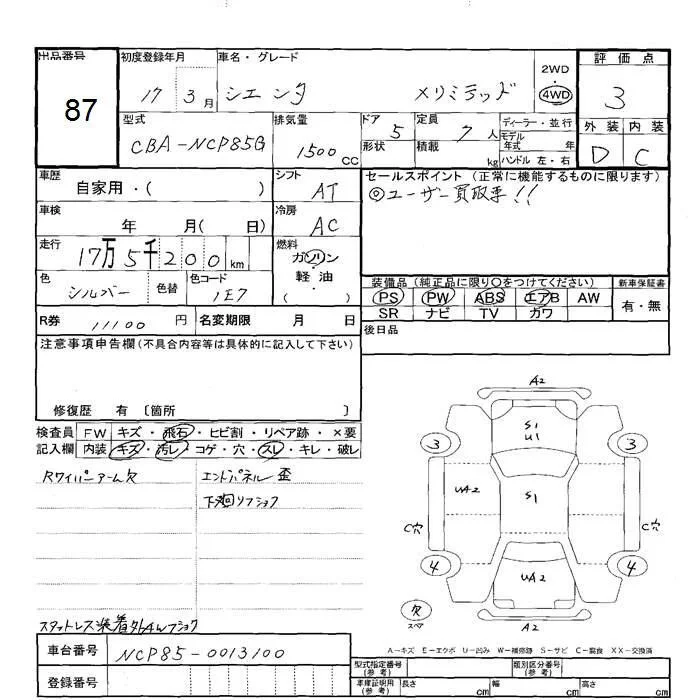 出品番号 87
初度登録年月 17 3月
車名・グレード シエンタ メリミテッド
2WD
4WD
評価点 3
外装 内装
D C
型式 CBA-NCP85G
排気量 1500 CC
ドア 5
形状
定員 7 人
積載 kg
ディーラー・並行
モデル
年式 年
ハンドル 左・右
車歴 自家用・( )
シフト AT
車検 年 月( 日)
冷房 AC
走行 17万5千200km
燃料 ガソリン
軽・油
( )
色 シルバー 色替
色コード 1E7
R券 11100 円
名変期限 月 日
セールスポイント (正常に機能するものに限ります)
◎ユーザー買取車!!
装備品(純正品に限り○をつけてください)
新車保証書
PS PW ABS エアB AW
有・無
SR ナビ TV ガワ
後日品
注意事項申告欄(不具合内容等は具体的に記入して下さい)
修復歴 有 〔箇所 〕
検査員 FW キズ・飛石・ヒビ割・リペア跡・×要
記入欄 内装 キズ・汚レ・コゲ・穴・スレ・キレ・破レ
Rワイパーアーム欠
エンドパネル歪
下廻リフショク
スタットレス装着外4Wフショク
A2
S1
U1
3 3
UA2
S1
C穴 C穴
4 4
UA2
欠
スペア
A2
A-キズ E-エクボ U-凹み W-補修跡 S-サビ C-腐食 XX-交換済
車台番号 NCP85-0013100
登録番号
型式指定番号
(参考)
類別区分番号
(参考)
車庫証明用
(参考)
長さ cm
幅 cm
高さ cm